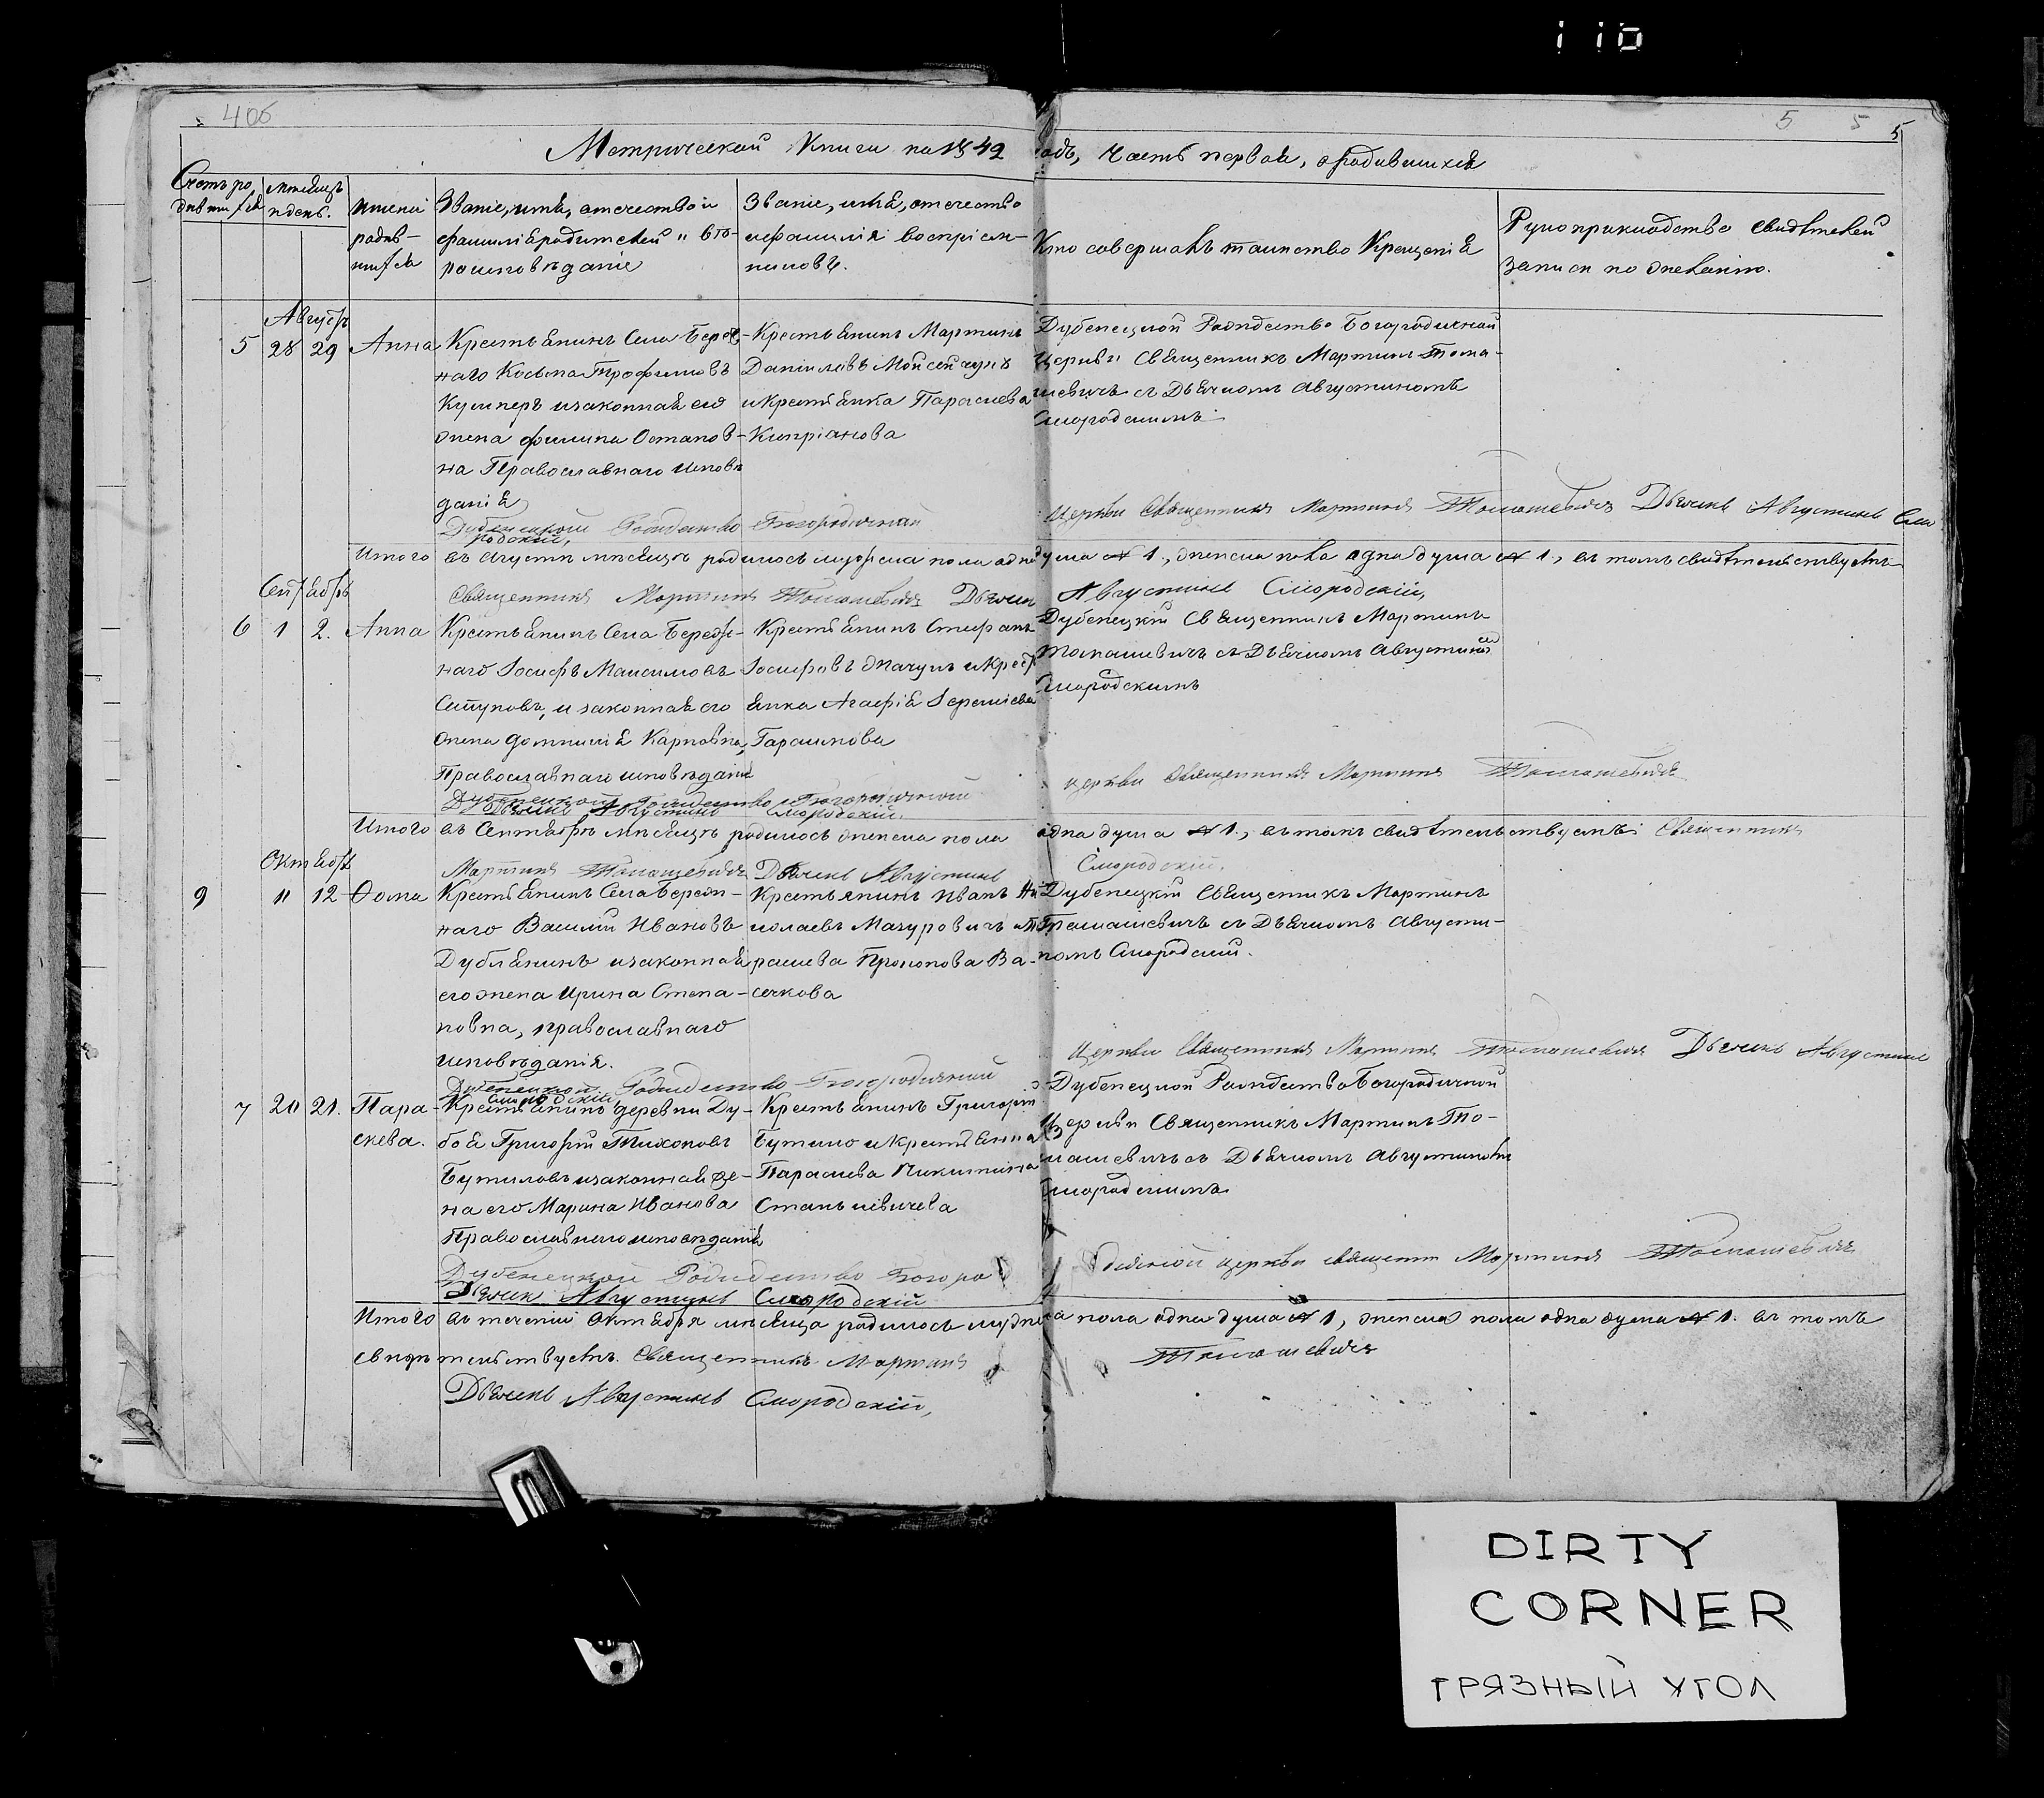 110
4об
5 5 5
Метрической Книги на 1842 годъ, Часть первая, о родившихся
Счетъ родившихся
Мѣсяцъ и день.
Имена родившихся
Званіе, имя, отчество и фамилія родителей и вѣроисповѣданіе
Званіе, имя, отчество и фамилія воспріемниковъ.
Кто совершалъ таинство Крещенія
Рукоприкладство свидѣтелей записи по желанію.
Августъ
5 28 29 Анна
Крестьянинъ Села Береж-
наго Косьма Трофимовъ
Кушнеръ и законная его
жена Остапов-
на Православнаго исповѣ
данія
Крестьянинъ Мартинъ
Даніиловъ Мойсейчукъ
и Крестьянка Параскева
Кипріанова
Дубенецкой Рождество Богородичной
Церкви Священникъ Мартинъ Тома-
шевичъ съ Дьячкомъ Августиномъ
Смородскимъ
Дубенецкой Рождество Богородичной Церкви Священникъ Мартинъ Томашевичъ Дьячекъ Августинъ Смо
родскій,
Итого въ Августѣ мѣсяцѣ родилось мужеска пола одна душа № 1, женска пола одна душа № 1, въ томъ свидѣтельствуетъ
Священникъ Мартинъ Томашевичъ Дьячекъ Августинъ Смородскій,
Сентябрь
6 1 2. Анна
Крестьянинъ Села Береж-
наго Іосифъ Максимовъ
Ступовъ, и законная его
жена Домникія Карповна,
Православнаго исповѣданія
Крестьянинъ Стефанъ
Іосифовъ и Крест
янка Агафія Іереміева
Гарасимова
Дубенецкій Священникъ Мартинъ
Томашевичъ съ Дьячкомъ Августиномъ
Смородскимъ
Дубенецкой Рождество Богородичной церкви Священникъ Мартинъ Томашевичъ
Дьячекъ Августинъ Смородскій.
Итого въ Сентябрѣ мѣсяцѣ родилось женска пола одна душа № 1, въ томъ свидѣтельствуетъ Священникъ
Мартинъ Томашевичъ Дьячекъ Августинъ Смородскій.
Октябрь
9 11 12 Ѳома
Крестьянинъ Села Береж-
наго Василій Ивановъ
Дублянинъ и законная
его жена Ирина Степа-
новна, православнаго
исповѣданія.
Крестьянинъ Иванъ Ни
колаевъ Мазуровичъ и Па
раскева Прокопова Ва-
сечкова
Дубенецкій Священникъ Мартинъ
Томашевичъ съ Дьячкомъ Августи-
номъ Смородскій.
Дубенецкой Рождество Богородичной Церкви Священникъ Мартинъ Томашевичъ Дьячекъ Августинъ
Смородскій
7 20 21. Пара-
скева.
Крестьянинъ деревни Ду-
боя Григорій Тихоновъ
Бутиловъ и законная же-
на его Марина Иванова
Православнаго исповѣданія
Крестьянинъ Григорій
Бутило и Крестьянка
Параскева Никитина
Станькевичева
Дубенецкой Рождество Богородичной
Церкви Священникъ Мартинъ То-
машевичъ съ Дьячкомъ Августиномъ
Смородскимъ
Дубенецкой Рождество Богоро церкви священ Мартинъ Томашевичъ
Дьячек Августинъ Смородскій
Итого въ теченіи Октября мѣсяца родилось мужеска пола одна душа № 1, женска пола одна душа № 1. въ томъ
свидѣтельствуетъ. Священникъ Мартинъ Томашевичъ
Дьячекъ Августинъ Смородскій,
DIRTY
CORNER
ГРЯЗНЫЙ УГОЛ